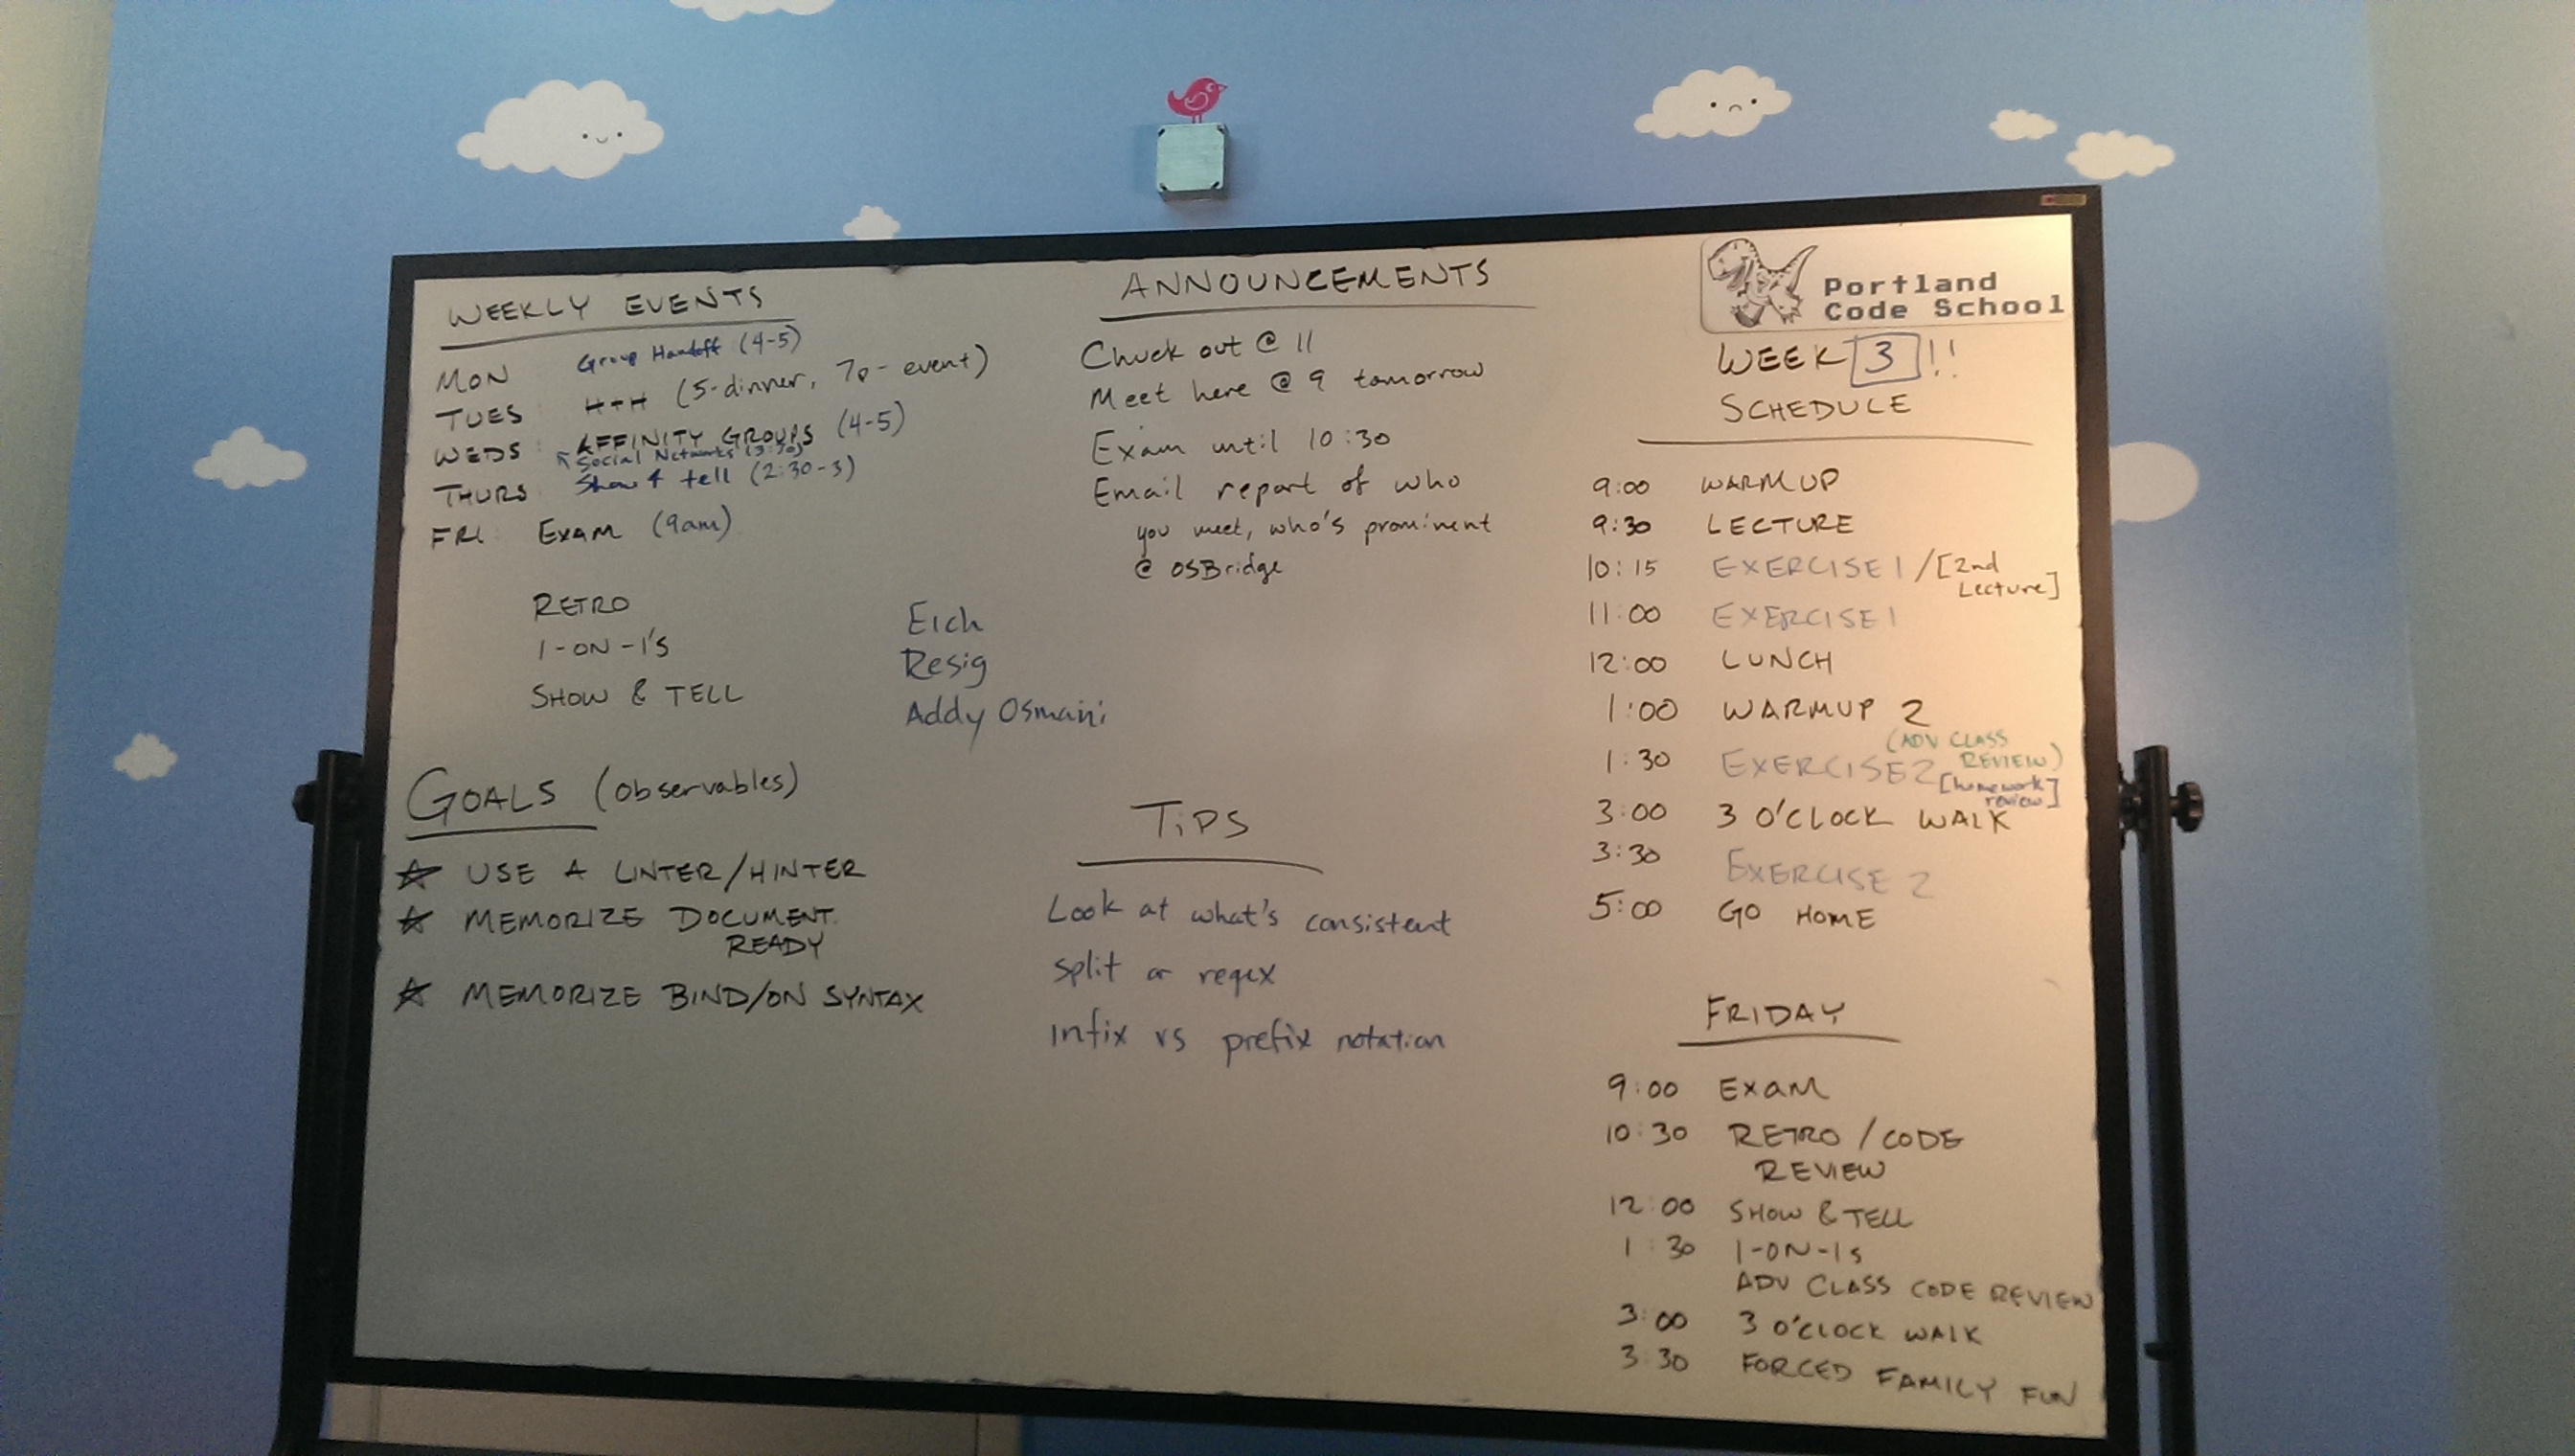 WEEKLY EVENTS
MON Group Handoff (4-5)
TUES H+H (5-dinner, 7p- event)
WEDS AFFINITY GROUPS (4-5)
Social Networks (3:30)
THURS Show & tell (2:30-3)
FRI EXAM (9am)
RETRO
1-ON-1'S
SHOW & TELL
Eich
Resig
Addy Osmani
GOALS (observables)
USE A LINTER/HINTER
MEMORIZE DOCUMENT.
READY
MEMORIZE BIND/ON SYNTAX
ANNOUNCEMENTS
Chuck out @ 11
Meet here @ 9 tomorrow
Exam until 10:30
Email report of who
you meet, who's prominent
@ OSBridge
TIPS
Look at what's consistent
split or regex
infix vs prefix notation
Portland
Code School
WEEK 3!!
SCHEDULE
9:00 WARMUP
9:30 LECTURE
10:15 EXERCISE 1 / [2nd
Lecture]
11:00 EXERCISE 1
12:00 LUNCH
1:00 WARMUP 2
(ADV CLASS
1:30 EXERCISE 2 REVIEW)
[homework
review]
3:00 3 O'CLOCK WALK
3:30 EXERCISE 2
5:00 GO HOME
FRIDAY
9:00 EXAM
10:30 RETRO / CODE
REVIEW
12:00 SHOW & TELL
1:30 1-ON-1s
ADV CLASS CODE REVIEW
3:00 3 O'CLOCK WALK
3:30 FORCED FAMILY FUN